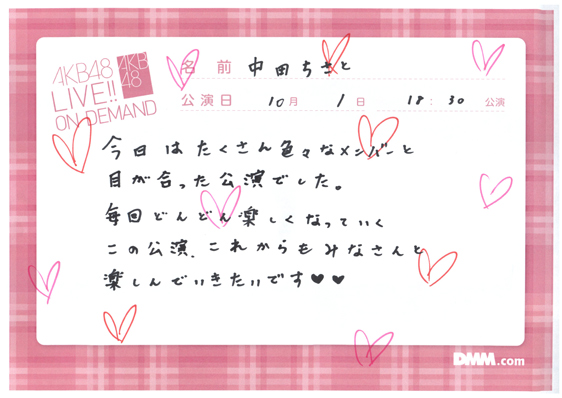 AKB48
LIVE!!
ON DEMAND
AKB
48
名前 中田ちさと
公演日 10月 1日 18:30 公演
今日はたくさん色々なメンバーと
目が合った公演でした。
毎回どんどん楽しくなっていく
この公演、これからもみなさんと
楽しんでいきたいです♥♥
DMM.com